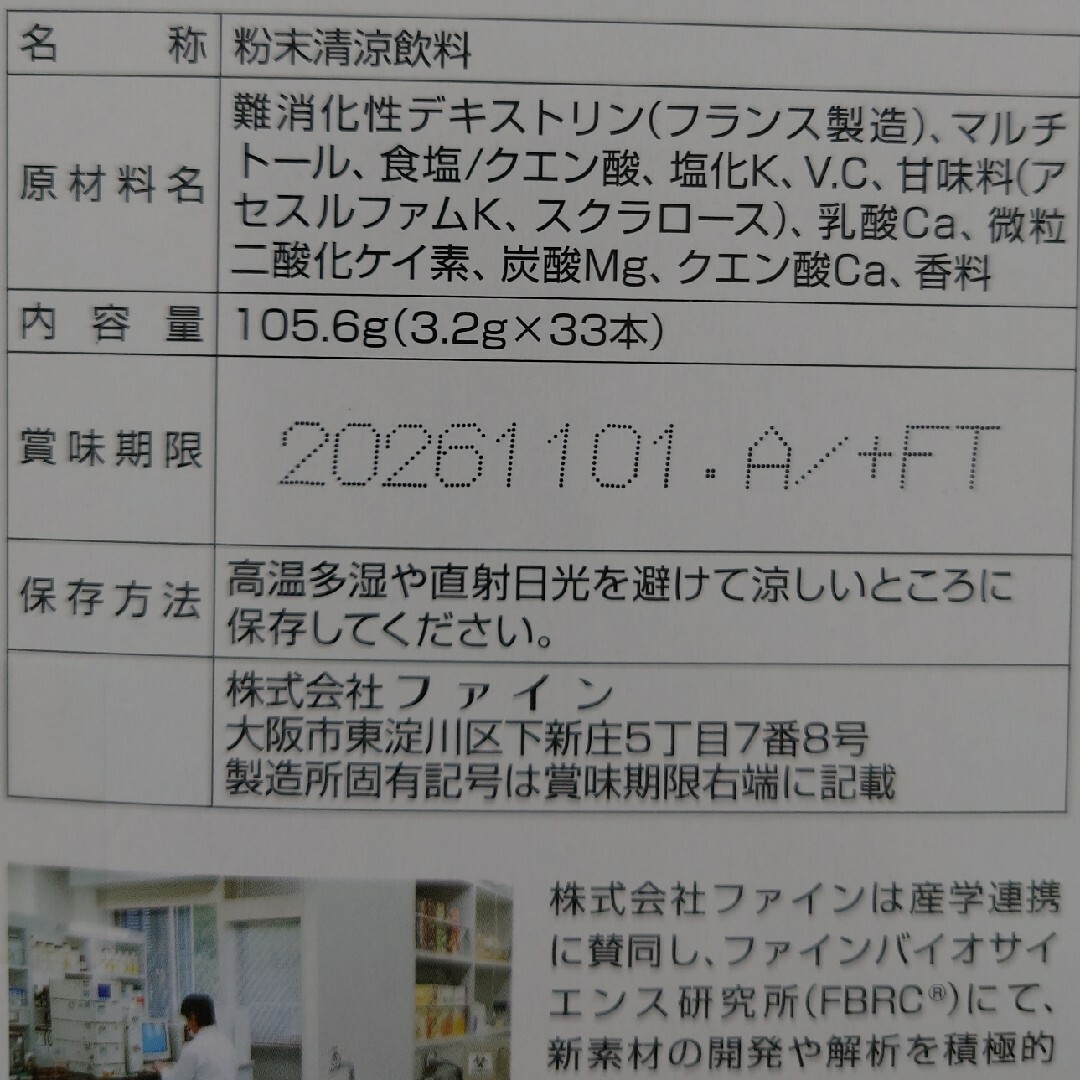 名称 粉末清涼飲料
原材料名 難消化性デキストリン(フランス製造)、マルチ
トール、食塩/クエン酸、塩化K、V.C、甘味料(ア
セスルファムK、スクラロース)、乳酸Ca、微粒
二酸化ケイ素、炭酸Mg、クエン酸Ca、香料
内容量 105.6g(3.2g×33本)
賞味期限 20261101.A/+FT
保存方法 高温多湿や直射日光を避けて涼しいところに
保存してください。
株式会社ファイン
大阪市東淀川区下新庄5丁目7番8号
製造所固有記号は賞味期限右端に記載
株式会社ファインは産学連携
に賛同し、ファインバイオサイ
エンス研究所(FBRC®)にて、
新素材の開発や解析を積極的